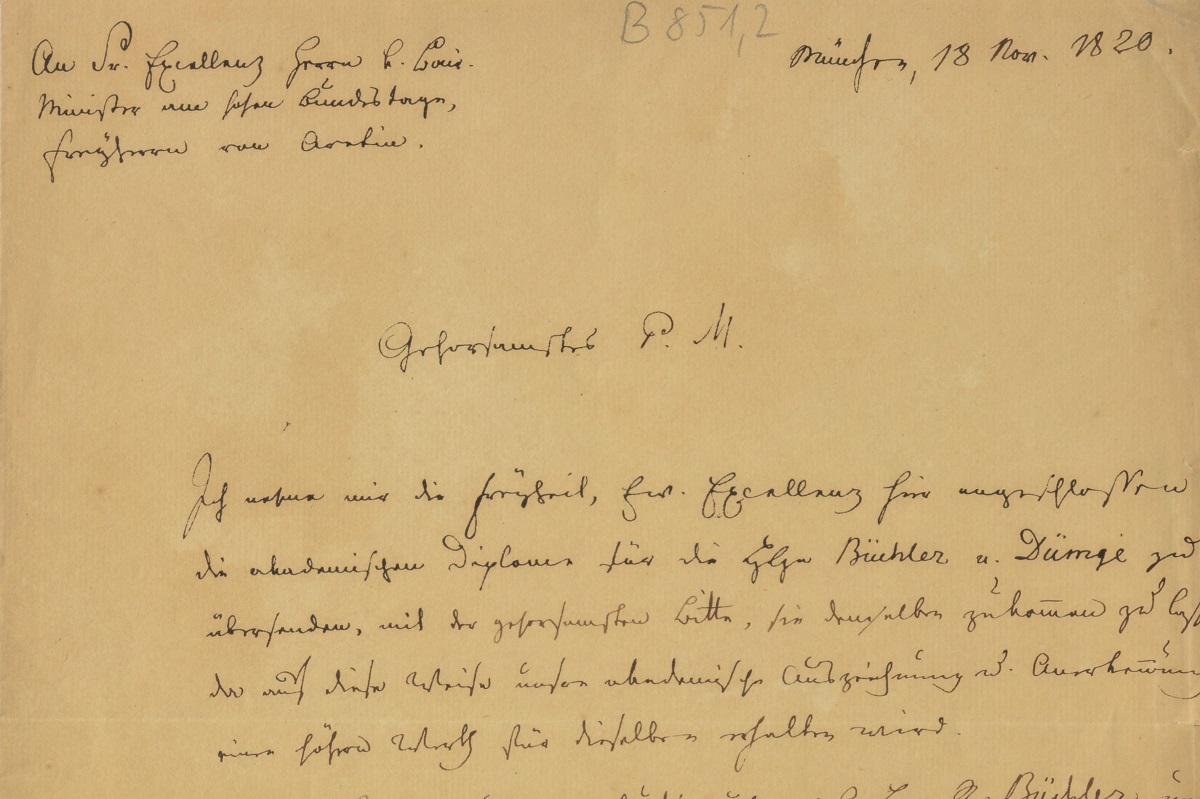 B 851,2
An Sr. Excellenz Herrn k. bair.
Minister am hohen Bundestage,
Freyherrn von Aretin.
München, 18 Nov. 1820.
Gehorsamstes P. M.
Ich nehme mir die Freyheit, Ew. Excellenz hier angeschlossen
die akademischen Diplome für die Büchler u. Dümge zu
übersenden, mit der gehorsamsten Bitte, sie denselben zukom̅en zu
da auf diese Weise unsre akademische Auszeichnung u.
einen höhern Werth für dieselben erhalten wird.
Büchler